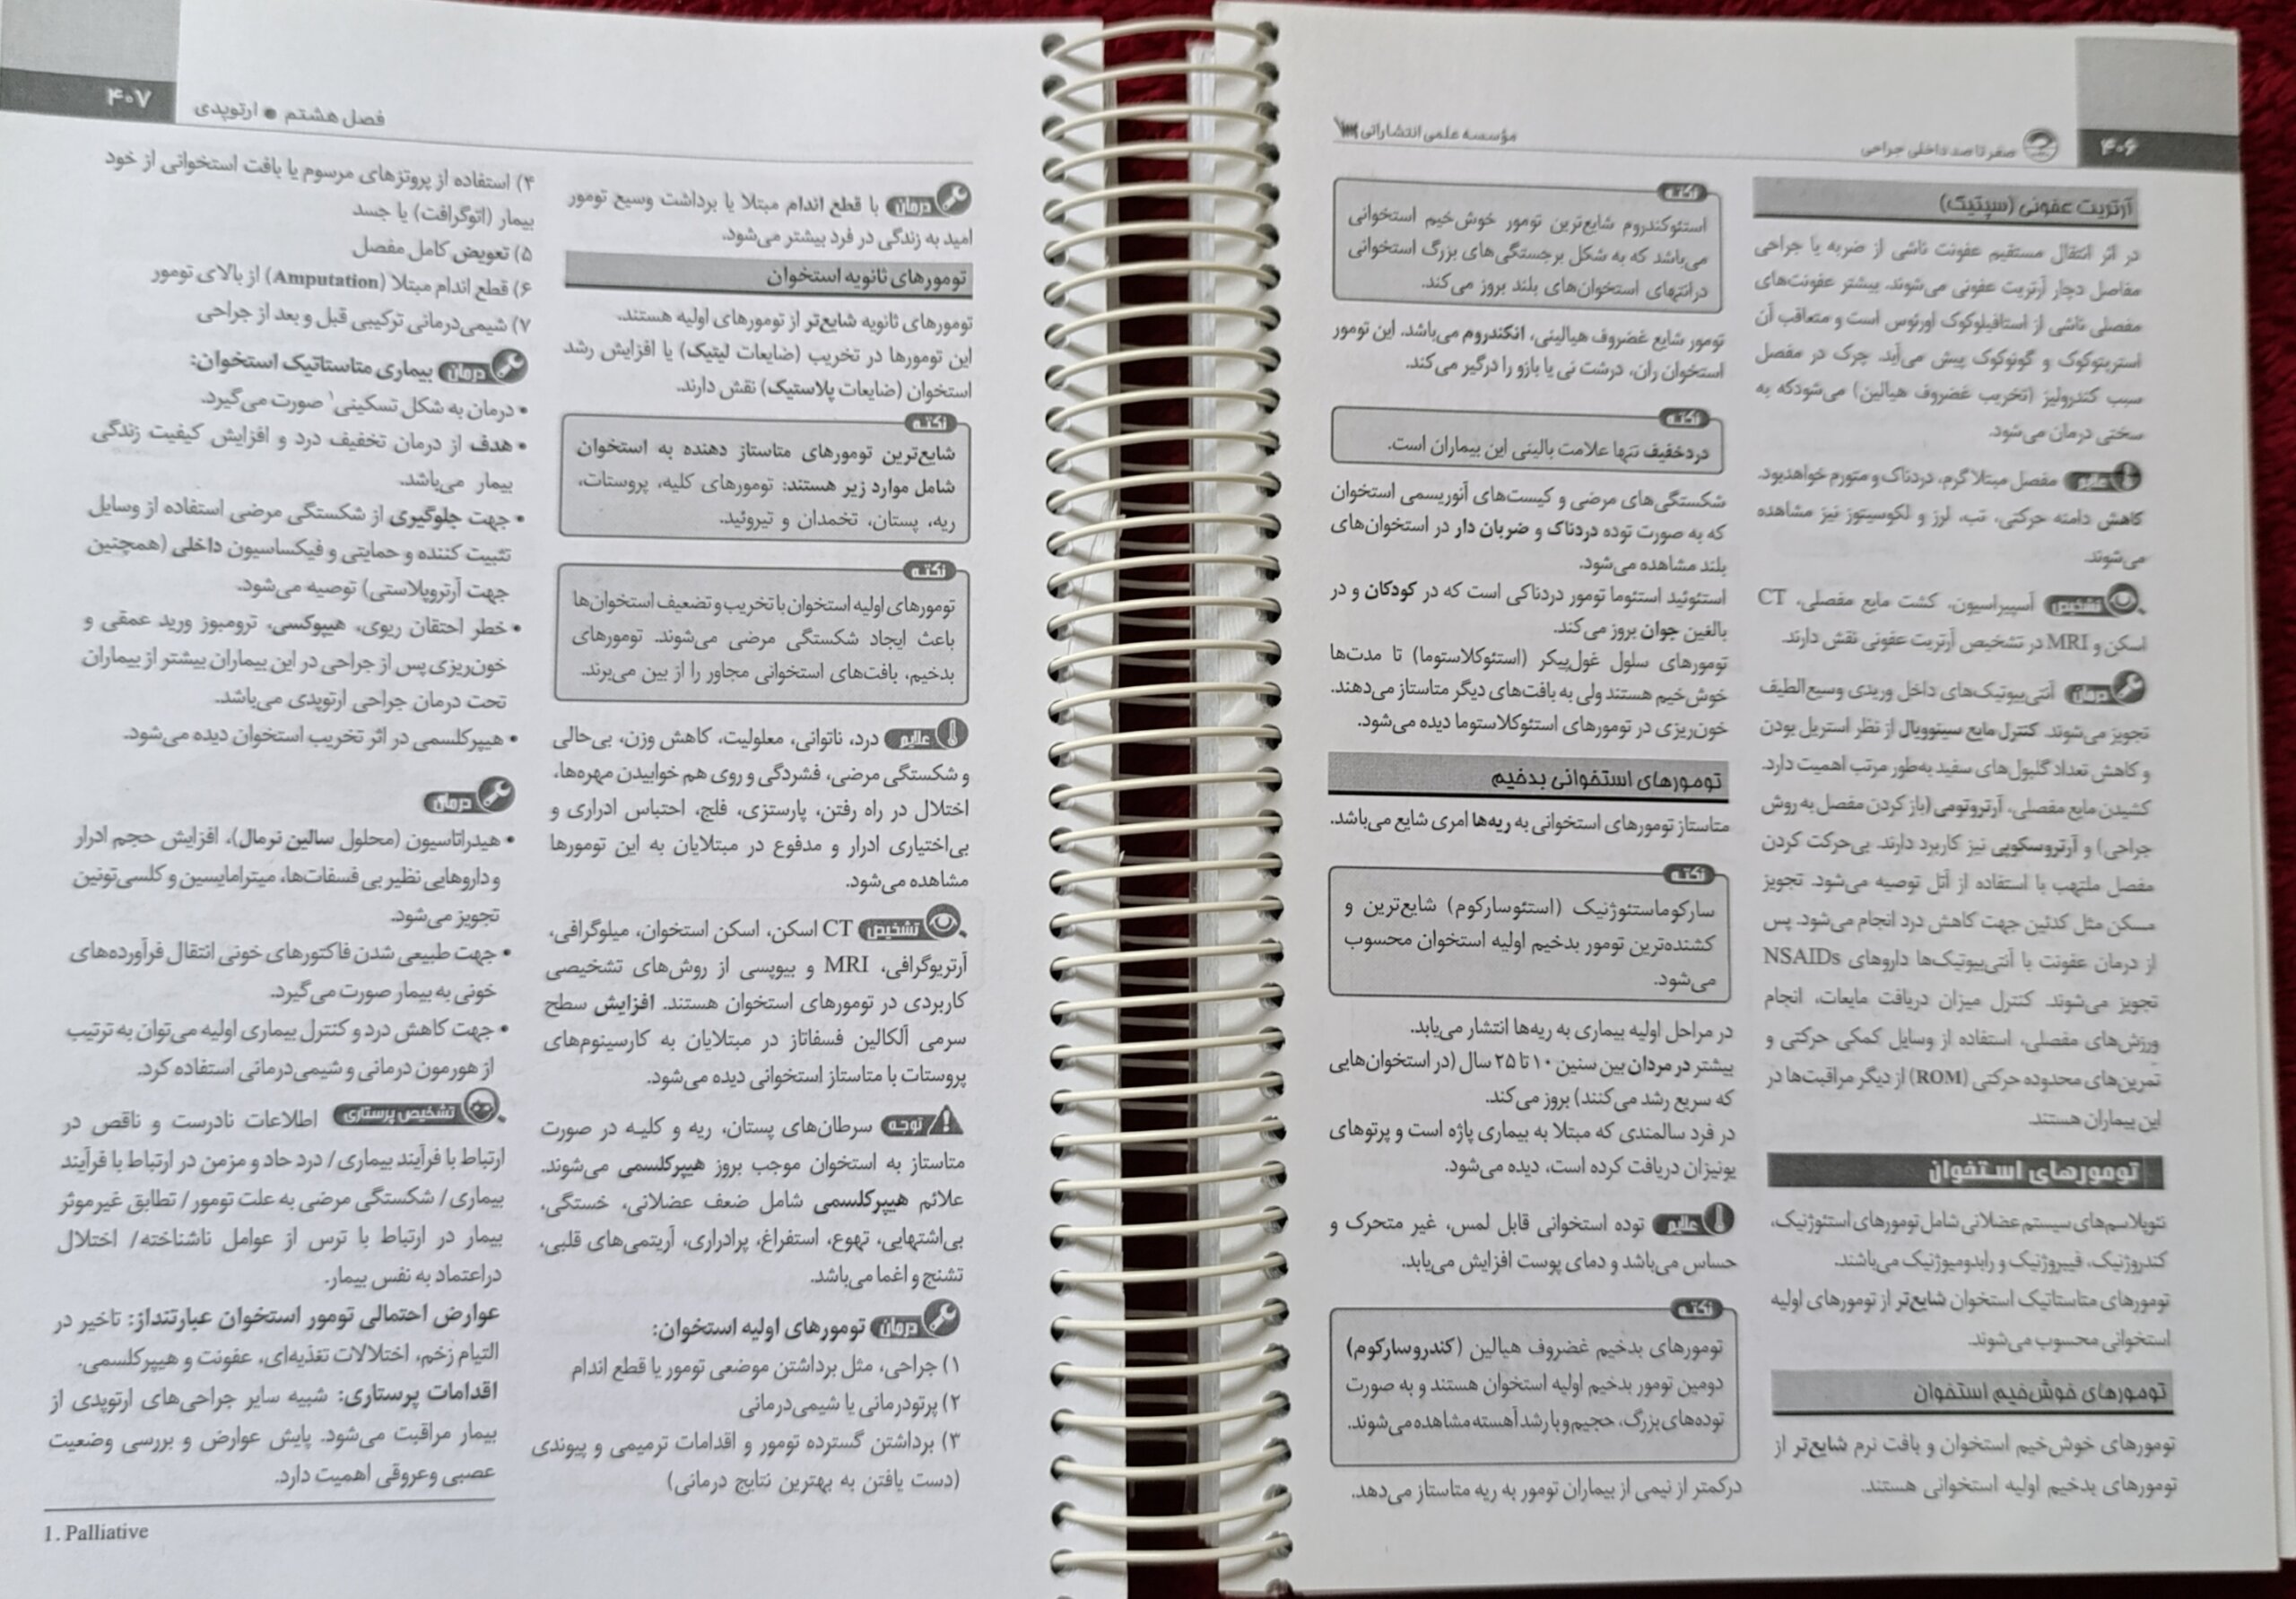 ۴۰۶
صفر تا صد داخلی جراحی
مؤسسه علمی انتشاراتی
آرتریت عفونی (سپتیک)
در اثر انتقال مستقیم عفونت ناشی از ضربه یا جراحی
مفاصل دچار آرتریت عفونی می‌شوند. بیشتر عفونت‌های
مفصلی ناشی از استافیلوکوک اورئوس است و متعاقب آن
استرپتوکوک و گونوکوک پیش می‌آید. چرک در مفصل
سبب کندرولیز (تخریب غضروف هیالین) می‌شودکه به
سختی درمان می‌شود.
علایم مفصل مبتلا گرم، دردناک و متورم خواهدبود.
کاهش دامنه حرکتی، تب، لرز و لکوسیتوز نیز مشاهده
می‌شوند.
تشخیص آسپیراسیون، کشت مایع مفصلی، CT
اسکن و MRI در تشخیص آرتریت عفونی نقش دارند.
درمان آنتی‌بیوتیک‌های داخل وریدی وسیع‌الطیف
تجویز می‌شوند. کنترل مایع سینوویال از نظر استریل بودن
و کاهش تعداد گلبول‌های سفید به‌طور مرتب اهمیت دارد.
کشیدن مایع مفصلی، آرتروتومی (باز کردن مفصل به روش
جراحی) و آرتروسکوپی نیز کاربرد دارند. بی‌حرکت کردن
مفصل ملتهب با استفاده از آتل توصیه می‌شود. تجویز
مسکن مثل کدئین جهت کاهش درد انجام می‌شود. پس
از درمان عفونت با آنتی‌بیوتیک‌ها داروهای NSAIDs
تجویز می‌شوند. کنترل میزان دریافت مایعات، انجام
ورزش‌های مفصلی، استفاده از وسایل کمکی حرکتی و
تمرین‌های محدوده حرکتی (ROM) از دیگر مراقبت‌ها در
این بیماران هستند.
تومورهای استخوان
نئوپلاسم‌های سیستم عضلانی شامل تومورهای استئوژنیک،
کندروژنیک، فیبروژنیک و رابدومیوژنیک می‌باشند.
تومورهای متاستاتیک استخوان شایع‌تر از تومورهای اولیه
استخوانی محسوب می‌شوند.
تومورهای خوش‌خیم استخوان
تومورهای خوش‌خیم استخوان و بافت نرم شایع‌تر از
تومورهای بدخیم اولیه استخوانی هستند.
نکته
استئوکندروم شایع‌ترین تومور خوش‌خیم استخوانی
می‌باشد که به شکل برجستگی‌های بزرگ استخوانی
درانتهای استخوان‌های بلند بروز می‌کند.
تومور شایع غضروف هیالینی، انکندروم می‌باشد. این تومور
استخوان ران، درشت نی یا بازو را درگیر می‌کند.
نکته
دردخفیف تنها علامت بالینی این بیماران است.
شکستگی‌های مرضی و کیست‌های آنوریسمی استخوان
که به صورت توده دردناک و ضربان دار در استخوان‌های
بلند مشاهده می‌شود.
استئوئید استئوما تومور دردناکی است که در کودکان و در
بالغین جوان بروز می‌کند.
تومورهای سلول غول‌پیکر (استئوکلاستوما) تا مدت‌ها
خوش‌خیم هستند ولی به بافت‌های دیگر متاستاز می‌دهند.
خون‌ریزی در تومورهای استئوکلاستوما دیده می‌شود.
تومورهای استخوانی بدخیم
متاستاز تومورهای استخوانی به ریه‌ها امری شایع می‌باشد.
نکته
سارکوماستئوژنیک (استئوسارکوم) شایع‌ترین و
کشنده‌ترین تومور بدخیم اولیه استخوان محسوب
می‌شود.
در مراحل اولیه بیماری به ریه‌ها انتشار می‌یابد.
بیشتر در مردان بین سنین ۱۰ تا ۲۵ سال (در استخوان‌هایی
که سریع رشد می‌کنند) بروز می‌کند.
در فرد سالمندی که مبتلا به بیماری پاژه است و پرتوهای
یونیزان دریافت کرده است، دیده می‌شود.
علایم توده استخوانی قابل لمس، غیر متحرک و
حساس می‌باشد و دمای پوست افزایش می‌یابد.
نکته
تومورهای بدخیم غضروف هیالین (کندروسارکوم)
دومین تومور بدخیم اولیه استخوان هستند و به صورت
توده‌های بزرگ، حجیم و با رشد آهسته مشاهده می‌شوند.
درکمتر از نیمی از بیماران تومور به ریه متاستاز می‌دهد.
فصل هشتم ● ارتوپدی
۴۰۷
درمان با قطع اندام مبتلا یا برداشت وسیع تومور
امید به زندگی در فرد بیشتر می‌شود.
تومورهای ثانویه استخوان
تومورهای ثانویه شایع‌تر از تومورهای اولیه هستند.
این تومورها در تخریب (ضایعات لیتیک) یا افزایش رشد
استخوان (ضایعات پلاستیک) نقش دارند.
نکته
شایع‌ترین تومورهای متاستاز دهنده به استخوان
شامل موارد زیر هستند: تومورهای کلیه، پروستات،
ریه، پستان، تخمدان و تیروئید.
نکته
تومورهای اولیه استخوان با تخریب و تضعیف استخوان‌ها
باعث ایجاد شکستگی مرضی می‌شوند. تومورهای
بدخیم، بافت‌های استخوانی مجاور را از بین می‌برند.
علایم درد، ناتوانی، معلولیت، کاهش وزن، بی‌حالی
و شکستگی مرضی، فشردگی و روی هم خوابیدن مهره‌ها،
اختلال در راه رفتن، پارستزی، فلج، احتباس ادراری و
بی‌اختیاری ادرار و مدفوع در مبتلایان به این تومورها
مشاهده می‌شود.
تشخیص CT اسکن، اسکن استخوان، میلوگرافی،
آرتریوگرافی، MRI و بیوپسی از روش‌های تشخیصی
کاربردی در تومورهای استخوان هستند. افزایش سطح
سرمی آلکالین فسفاتاز در مبتلایان به کارسینوم‌های
پروستات با متاستاز استخوانی دیده می‌شود.
توجه سرطان‌های پستان، ریه و کلیه در صورت
متاستاز به استخوان موجب بروز هیپرکلسمی می‌شوند.
علائم هیپرکلسمی شامل ضعف عضلانی، خستگی،
بی‌اشتهایی، تهوع، استفراغ، پرادراری، آریتمی‌های قلبی،
تشنج و اغما می‌باشد.
درمان تومورهای اولیه استخوان:
۱) جراحی، مثل برداشتن موضعی تومور یا قطع اندام
۲) پرتودرمانی یا شیمی‌درمانی
۳) برداشتن گسترده تومور و اقدامات ترمیمی و پیوندی
(دست یافتن به بهترین نتایج درمانی)
۴) استفاده از پروتزهای مرسوم یا بافت استخوانی از خود
بیمار (اتوگرافت) یا جسد
۵) تعویض کامل مفصل
۶) قطع اندام مبتلا (Amputation) از بالای تومور
۷) شیمی‌درمانی ترکیبی قبل و بعد از جراحی
درمان بیماری متاستاتیک استخوان:
• درمان به شکل تسکینی۱ صورت می‌گیرد.
• هدف از درمان تخفیف درد و افزایش کیفیت زندگی
بیمار می‌باشد.
• جهت جلوگیری از شکستگی مرضی استفاده از وسایل
تثبیت کننده و حمایتی و فیکساسیون داخلی (همچنین
جهت آرتروپلاستی) توصیه می‌شود.
• خطر احتقان ریوی، هیپوکسی، ترومبوز ورید عمقی و
خون‌ریزی پس از جراحی در این بیماران بیشتر از بیماران
تحت درمان جراحی ارتوپدی می‌باشد.
• هیپرکلسمی در اثر تخریب استخوان دیده می‌شود.
درمان
• هیدراتاسیون (محلول سالین نرمال)، افزایش حجم ادرار
و داروهایی نظیر بی فسفات‌ها، میترامایسین و کلسی‌تونین
تجویز می‌شود.
• جهت طبیعی شدن فاکتورهای خونی انتقال فرآورده‌های
خونی به بیمار صورت می‌گیرد.
• جهت کاهش درد و کنترل بیماری اولیه می‌توان به ترتیب
از هورمون درمانی و شیمی‌درمانی استفاده کرد.
تشخیص پرستاری اطلاعات نادرست و ناقص در
ارتباط با فرآیند بیماری/ درد حاد و مزمن در ارتباط با فرآیند
بیماری/ شکستگی مرضی به علت تومور/ تطابق غیرموثر
بیمار در ارتباط با ترس از عوامل ناشناخته/ اختلال
دراعتماد به نفس بیمار.
عوارض احتمالی تومور استخوان عبارتنداز: تاخیر در
التیام زخم، اختلالات تغذیه‌ای، عفونت و هیپرکلسمی.
اقدامات پرستاری: شبیه سایر جراحی‌های ارتوپدی از
بیمار مراقبت می‌شود. پایش عوارض و بررسی وضعیت
عصبی وعروقی اهمیت دارد.
1. Palliative